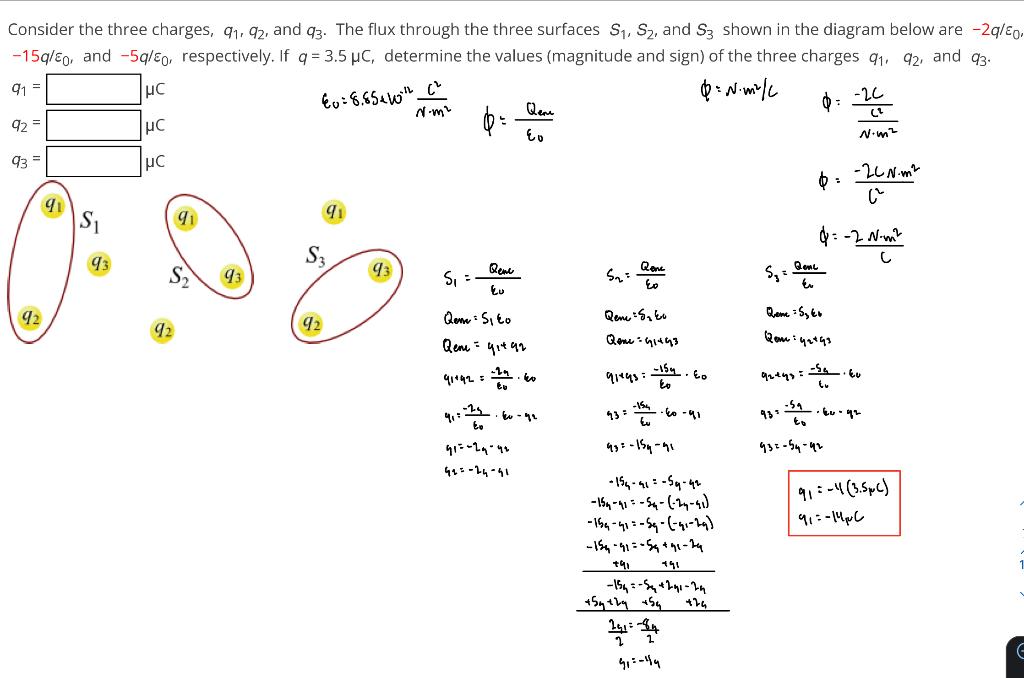 Consider the three charges, q₁, q₂, and q₃. The flux through the three surfaces S₁, S₂, and S₃ shown in the diagram below are −2q/ε₀,
−15q/ε₀, and −5q/ε₀, respectively. If q = 3.5 μC, determine the values (magnitude and sign) of the three charges q₁, q₂, and q₃.
q₁ = μC
q₂ = μC
q₃ = μC
ε₀ = 8.85×10⁻¹² C²/N·m²
ϕ = Qenc/ε₀
ϕ = N·m²/C
ϕ = -2C/(C²/N·m²)
ϕ = -2C N·m²/C²
ϕ = -2 N·m²/C
q₁ S₁ q₃ q₂
q₁ S₂ q₃ q₂
q₁ S₃ q₃ q₂
S₁ = Qenc/ε₀
Qenc = S₁ε₀
Qenc = q₁+q₂
q₁+q₂ = -2q/ε₀ · ε₀
q₁ = -2q/ε₀ · ε₀ - q₂
q₁ = -2q - q₂
q₂ = -2q - q₁
S₂ = Qenc/ε₀
Qenc = S₂ε₀
Qenc = q₁+q₃
q₁+q₃ = -15q/ε₀ · ε₀
q₃ = -15q/ε₀ · ε₀ - q₁
q₃ = -15q - q₁
S₃ = Qenc/ε₀
Qenc = S₃ε₀
Qenc = q₂+q₃
q₂+q₃ = -5q/ε₀ · ε₀
q₃ = -5q/ε₀ · ε₀ - q₂
q₃ = -5q - q₂
-15q - q₁ = -5q - q₂
-15q - q₁ = -5q - (-2q - q₁)
-15q - q₁ = -5q - (-q₁ - 2q)
-15q - q₁ = -5q + q₁ - 2q
+q₁ +q₁
-15q = -5q + 2q₁ - 2q
+5q +2q +5q +2q
2q₁/2 = -8q/2
q₁ = -4q
q₁ = -4(3.5μC)
q₁ = -14μC